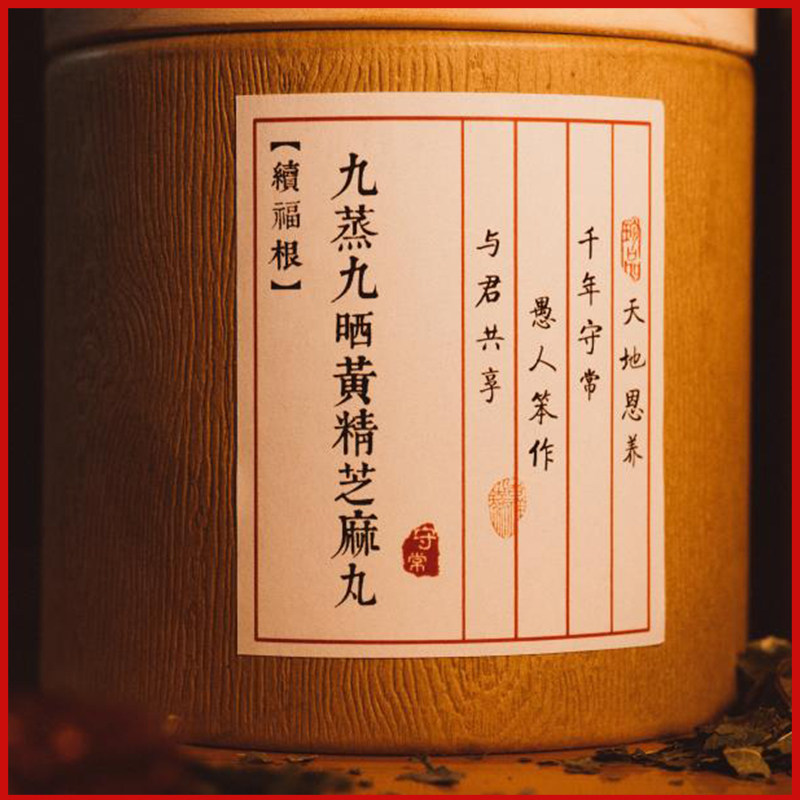 天地恩养
千年守常
愚人笨作
与君共享
守常
九蒸九晒黃精芝麻丸
【續福根】